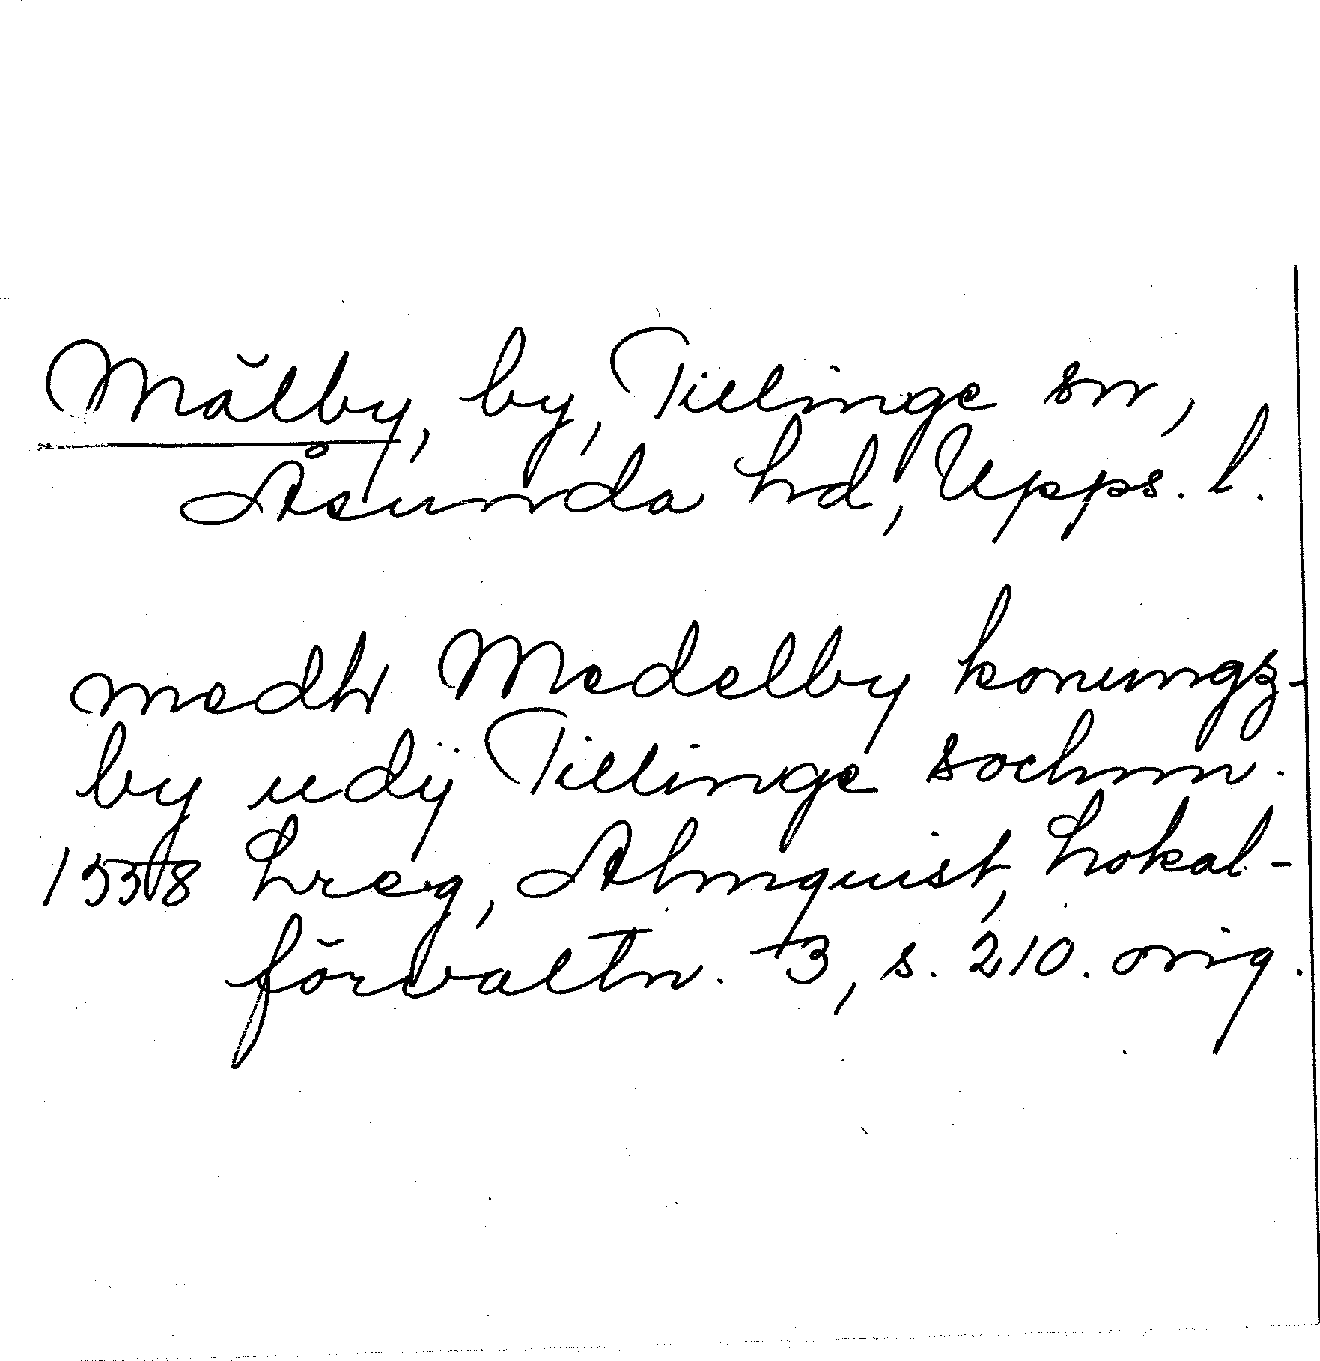 Mälby, by, Tillinge sn,
Åsunda hd, Upps. l.
medh Medelby konungz-
by udij Tillinge sochnn.
1558 hreg, Almquist, Lokal-
förvaltn. 3, s. 210. orig.